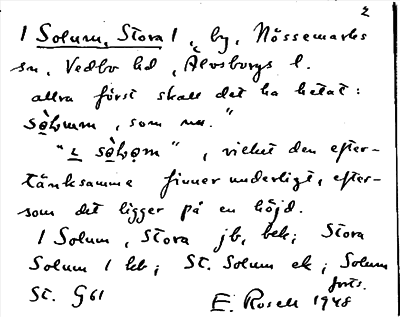 2
1 Solum, Stora 1, by, Nössemarks
sn, Vedbo hd, Älvsborgs l.
allra först skall det ha hetat:
som nu."
", vilket den efter-
tänksamme finner underligt, efter-
som det ligger på en höjd.
1 Solum, Stora jb, bek; Stora
Solum 1 kb; St. Solum ek; Solum
St. G61 forts.
E. Rosell 1948